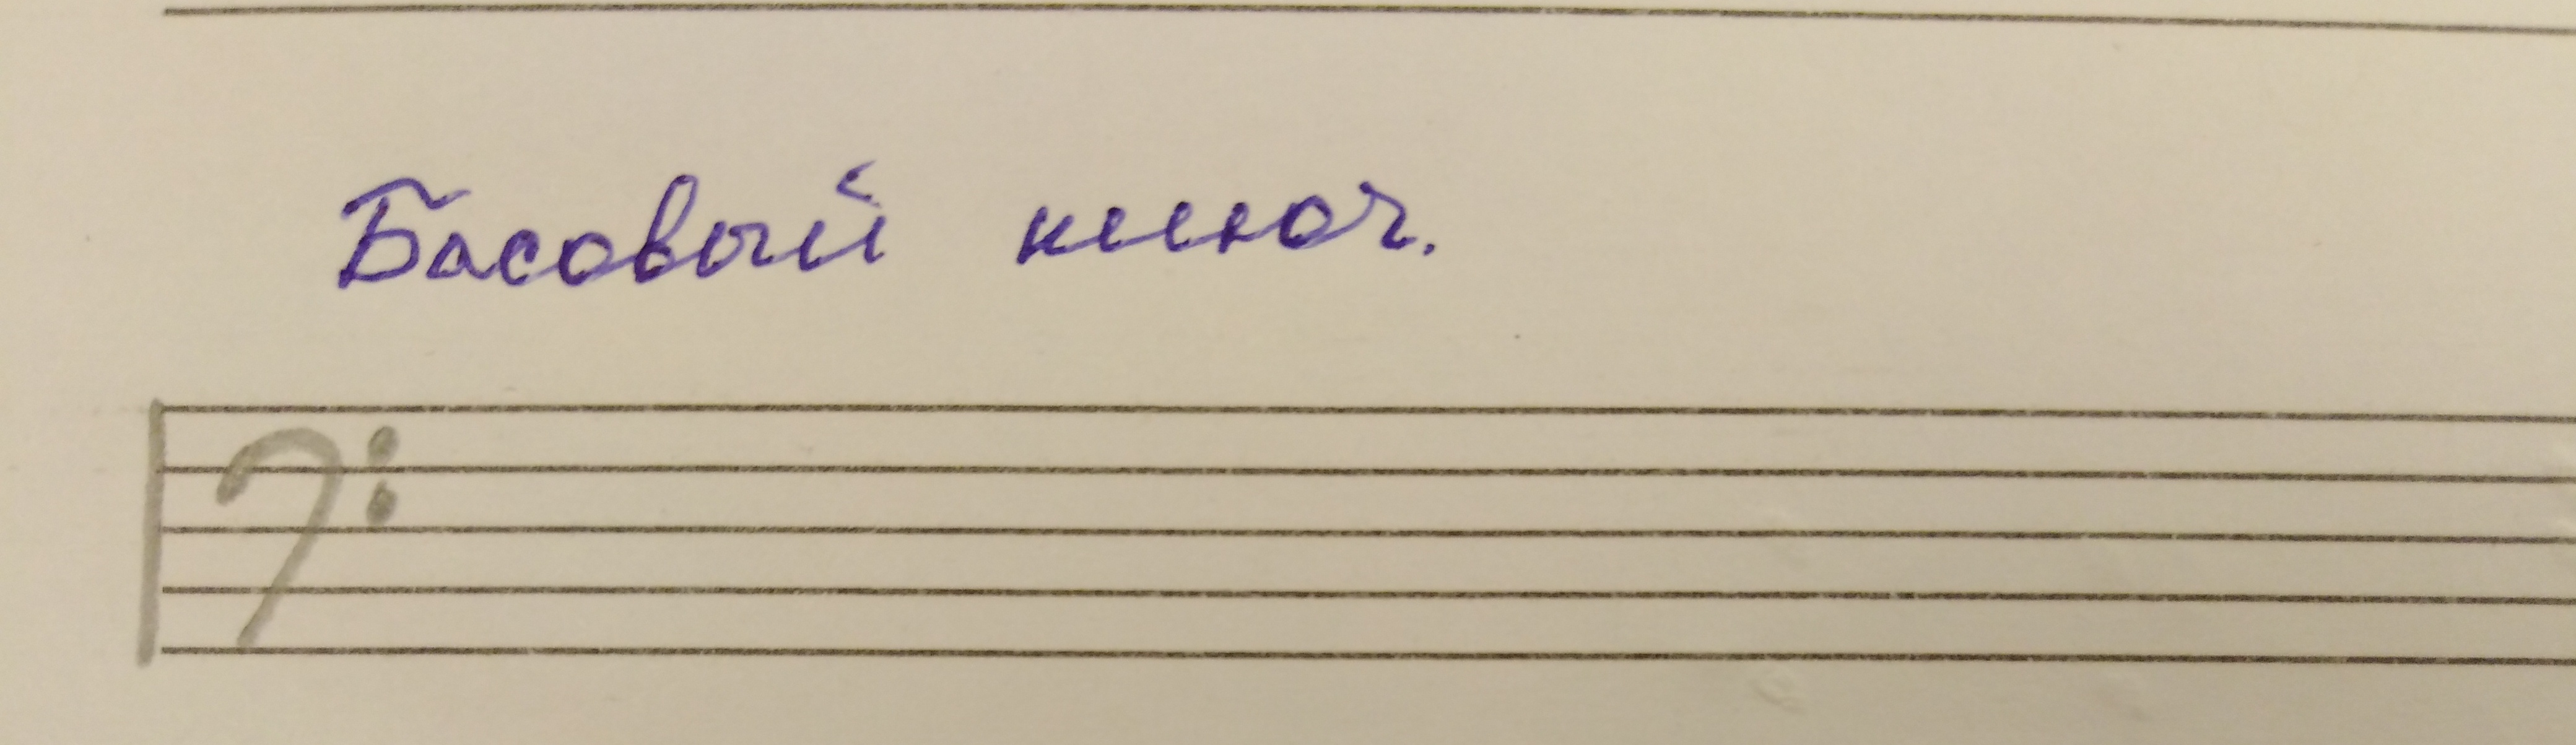 Басовый ключ.